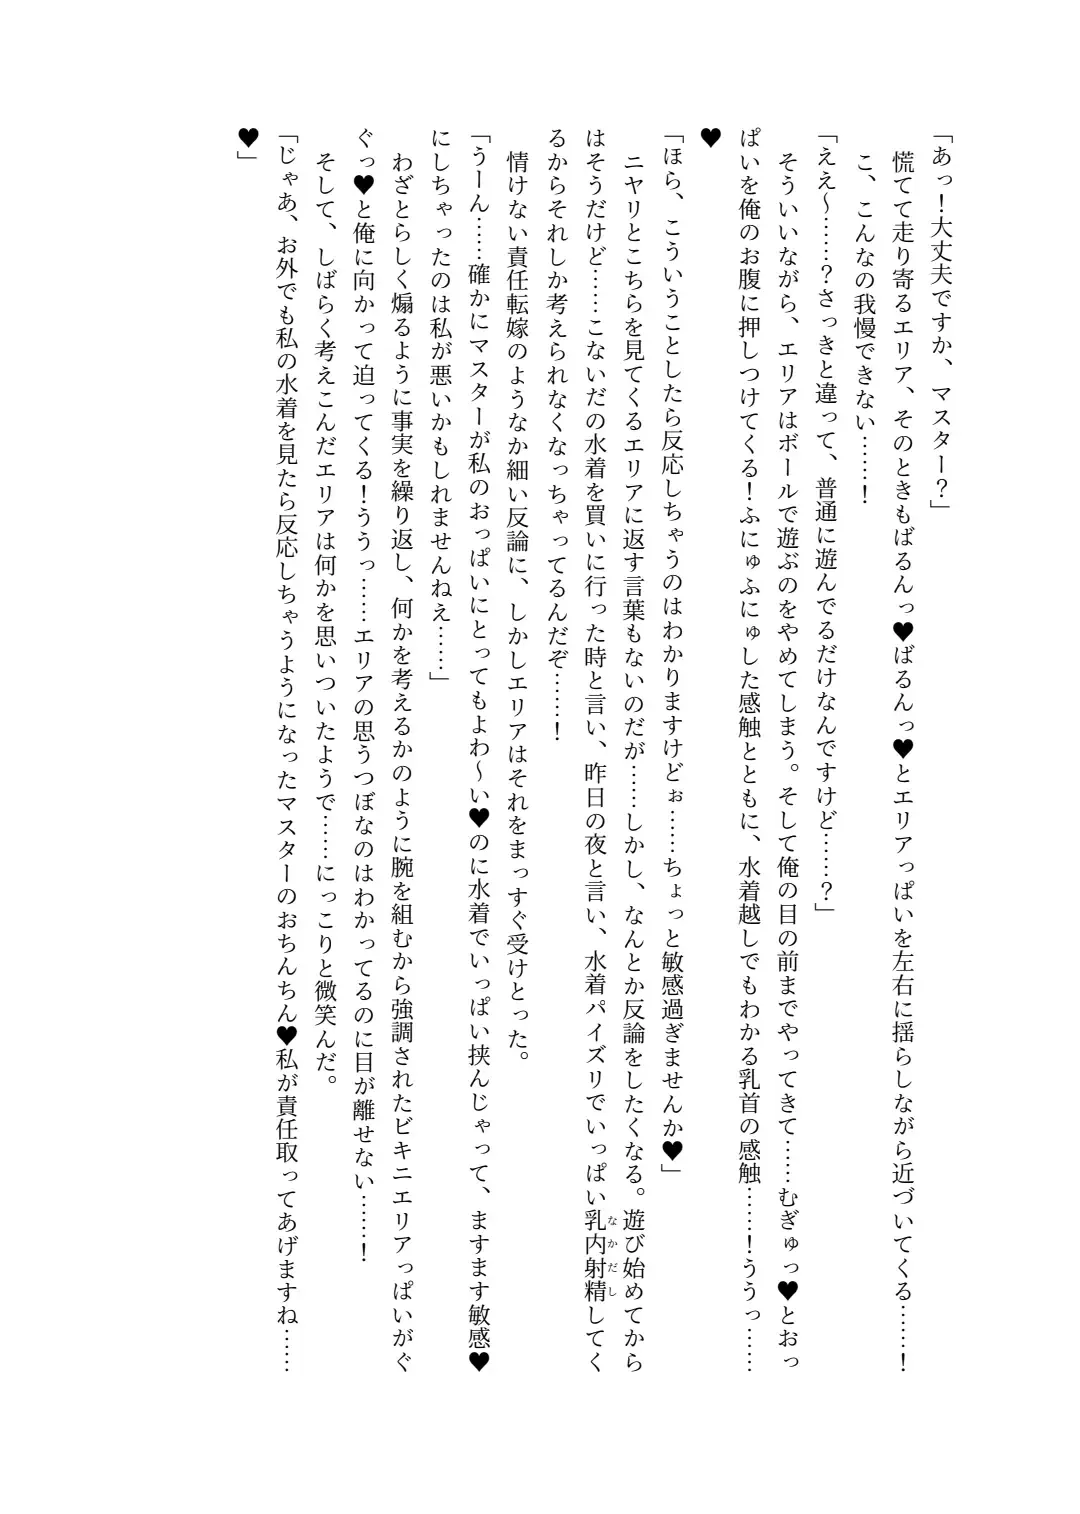 「あっ！大丈夫ですか、マスター？」
慌てて走り寄るエリア、そのときもばるんっ♥ばるんっ♥とエリアっぱいを左右に揺らしながら近づいてくる……！
こ、こんなの我慢できない……！
「ええ～……？さっきと違って、普通に遊んでるだけなんですけど……？」
そういいながら、エリアはボールで遊ぶのをやめてしまう。そして俺の目の前までやってきて……むぎゅっ♥とおっ
ぱいを俺のお腹に押しつけてくる！ふにゅふにゅした感触とともに、水着越しでもわかる乳首の感触……！ううっ……
♥
「ほら、こういうことしたら反応しちゃうのはわかりますけどぉ……ちょっと敏感過ぎませんか♥」
ニヤリとこちらを見てくるエリアに返す言葉もないのだが……しかし、なんとか反論をしたくなる。遊び始めてから
はそうだけど……こないだの水着を買いに行った時と言い、昨日の夜と言い、水着パイズリでいっぱい乳内射精なかだししてく
るからそれしか考えられなくなっちゃってるんだぞ……！
情けない責任転嫁のようなか細い反論に、しかしエリアはそれをまっすぐ受けとった。
「うーん……確かにマスターが私のおっぱいにとってもよわ～い♥のに水着でいっぱい挟んじゃって、ますます敏感♥
にしちゃったのは私が悪いかもしれませんねえ……」
わざとらしく煽るように事実を繰り返し、何かを考えるかのように腕を組むから強調されたビキニエリアっぱいがぐ
ぐっ♥と俺に向かって迫ってくる！ううっ……エリアの思うつぼなのはわかってるのに目が離せない……！
そして、しばらく考えこんだエリアは何かを思いついたようで……にっこりと微笑んだ。
「じゃあ、お外でも私の水着を見たら反応しちゃうようになったマスターのおちんちん♥私が責任取ってあげますね……
♥」